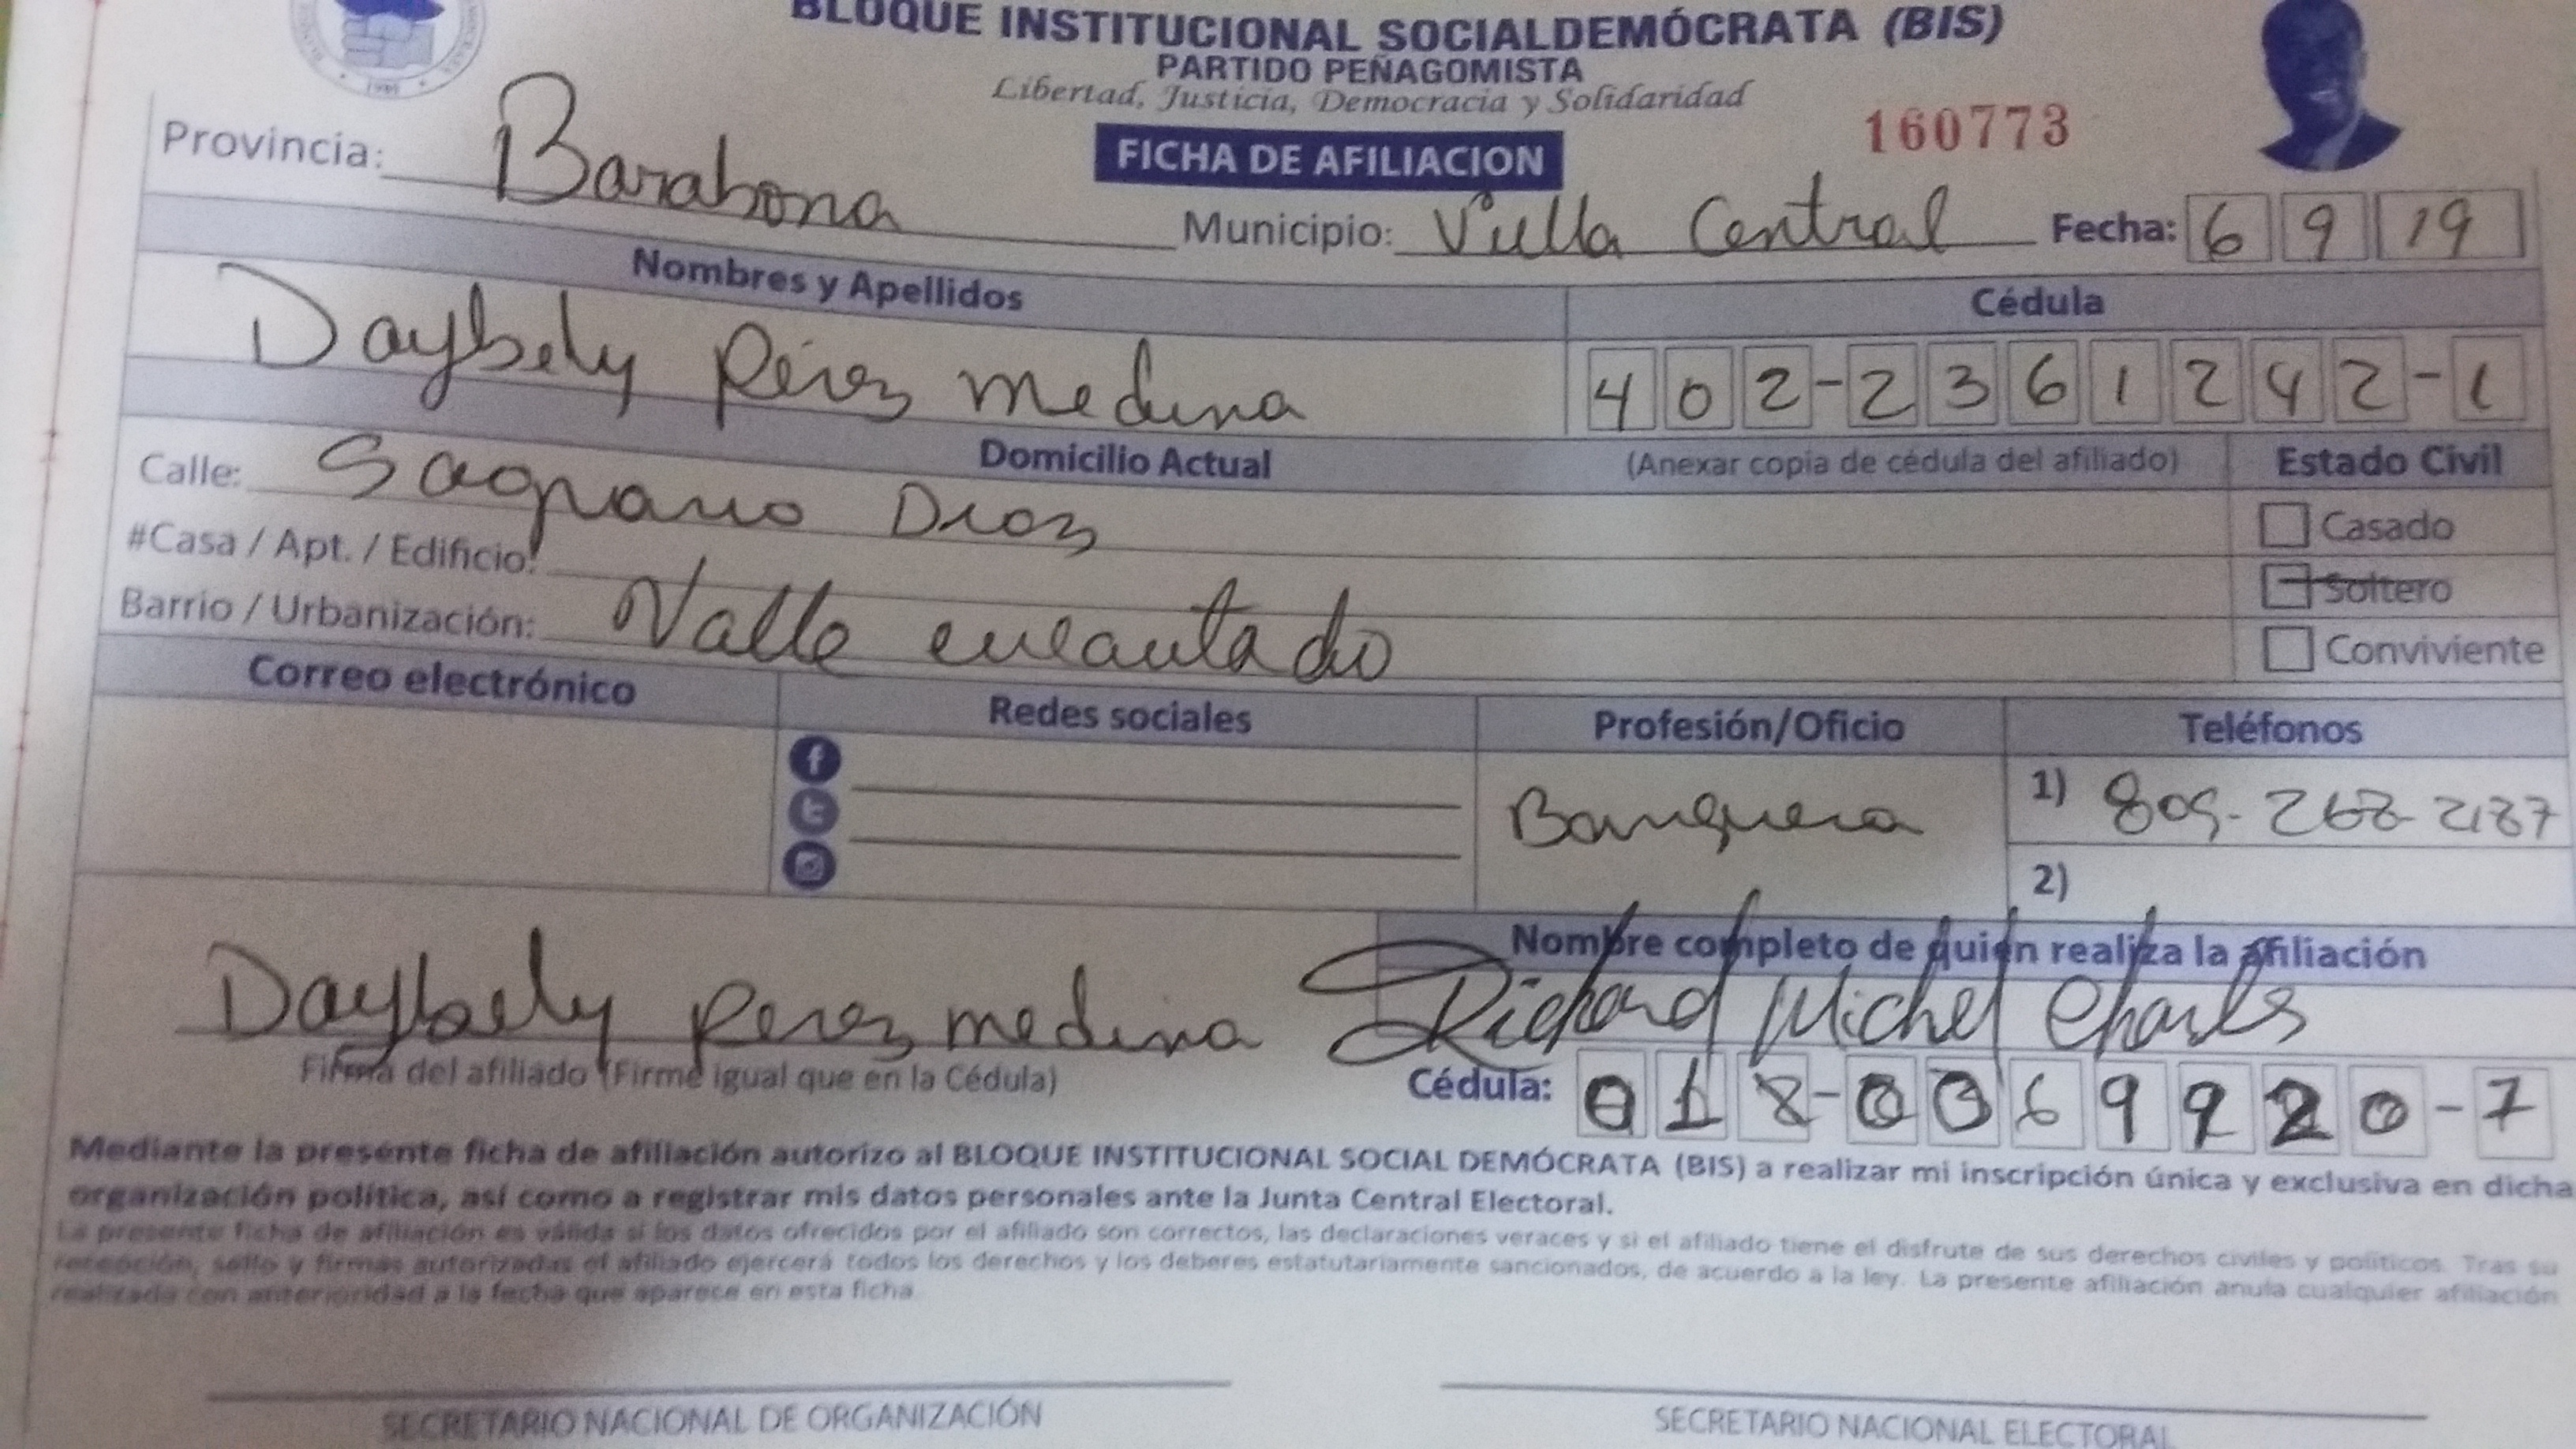 BLOQUE INSTITUCIONAL SOCIALDEMÓCRATA (BIS)
PARTIDO PEÑAGOMISTA
Libertad, Justicia, Democracia y Solidaridad
160773
FICHA DE AFILIACION
Provincia: Barahona
Municipio: Villa Central Fecha: 6 9 19
Nombres y Apellidos Cédula
Daybely Pérez medina 402-2361242-1
Domicilio Actual (Anexar copia de cédula del afiliado) Estado Civil
Calle: Sagrario Diaz
Casado
#Casa / Apt. / Edificio:
Soltero
Barrio / Urbanización: Valle encantado
Conviviente
Correo electrónico Redes sociales Profesión/Oficio Teléfonos
Banquera 1) 809-268-2187
2)
Nombre completo de quién realiza la afiliación
Daybely Perez medina Richard Michel Charles
Firma del afiliado (Firme igual que en la Cédula) Cédula: 018-0069920-7
Mediante la presente ficha de afiliación autorizo al BLOQUE INSTITUCIONAL SOCIAL DEMÓCRATA (BIS) a realizar mi inscripción única y exclusiva en dicha
organización política, así como a registrar mis datos personales ante la Junta Central Electoral.
La presente ficha de afiliación es válida si los datos ofrecidos por el afiliado son correctos, las declaraciones veraces y si el afiliado tiene el disfrute de sus derechos civiles y políticos. Tras su
recepción, sello y firmas autorizadas el afiliado ejercerá todos los derechos y los deberes estatutariamente sancionados, de acuerdo a la ley. La presente afiliación anula cualquier afiliación
realizada con anterioridad a la fecha que aparece en esta ficha.
SECRETARIO NACIONAL DE ORGANIZACIÓN SECRETARIO NACIONAL ELECTORAL